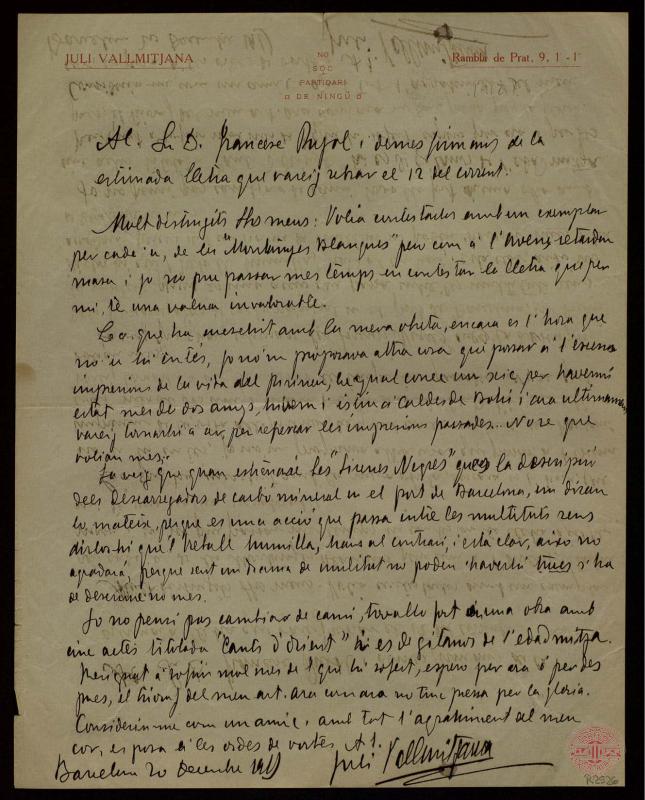 JULI VALLMITJANA
NO
SOC
PARTIDARI
DE NINGÚ
Rambla de Prat, 9, 1 - 1ª
Al Sr. D. Francesc Pujol i demes firmans de la
estimada lletra que vareig rebrer el 12 del corrent.
Molt distingits Srs meus: Volia contestarlos amb un exemplar
per cada u, de les "Montanyes Blanques" pero com a l'avenç retardan
massa i jo no puc passar mes temps en contestar la lletra que per
mi, té una valua invalorable.
Lo que ha merescut amb la meva obreta, encara es l'hora que
no u hi entés, jo no'm proposava altra cosa que posar a l'escena
impresions de la vida del Pirineu, la qual conec un xic per havermi
estat mes de dos anys, hivern i istiu a Caldes de Bohi i ara ultimament
vareig tornarhi a anar, per refrescar les impresions passades... No se que
volian mes.
Ja veig que quan estrenaré les "Sirenes Negres" que es la descripció
dels Descarregadors de carbó mineral en el port de Barcelona, em diran
lo mateix, perque es una acció que passa entre les multituts sens
dirloshi que'l treball humilla, sino al contrari, i está clar, aixó no
agradará, perque sent un drama de multitut no poden haverhi
de no mes.
Jo no pensi pas cambiar de camí, trevallo fort en una obra amb
cinc actes titolada "Cants d'Orient" hi es de gitanos de l'edad mitja.
Resignat a sofrir molt mes de l que he sofert, espero per ara ó per des
pues, el triomf del meu art. Ara com ara no tinc pressa per la gloria.
Considerin-me com un amic, i amb tot l'agraiment del meu
cor, es posa a les ordes de vostes, At.
Barcelona 20 Decembre 1919
Juli Vallmitjana
R.2526